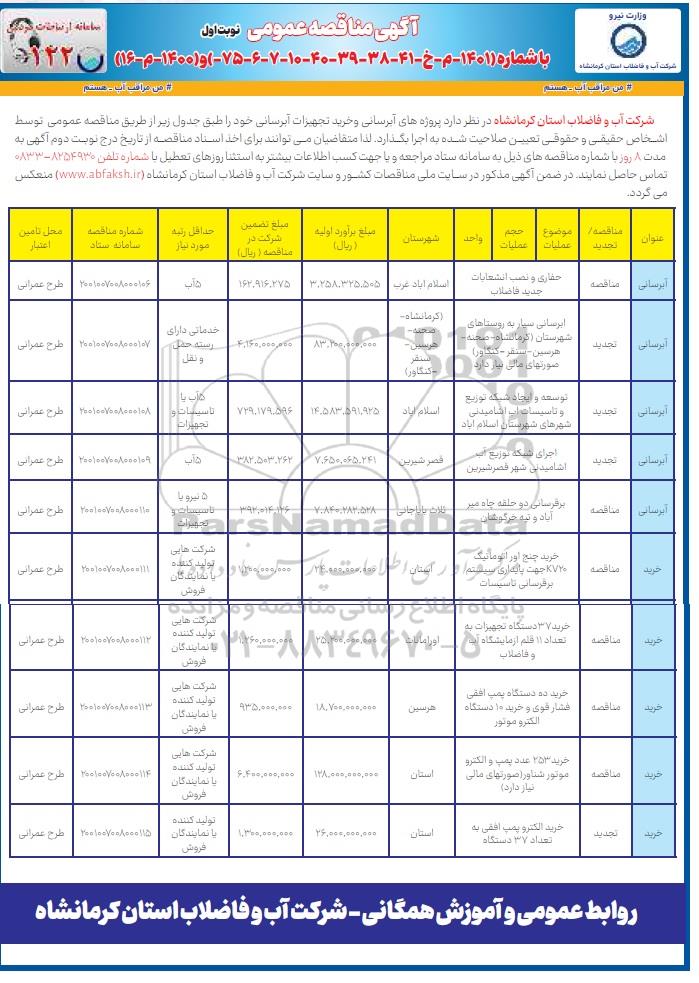 وزارت نیرو
شرکت آب و فاضلاب استان کرمانشاه
آگهی مناقصه عمومی نوبت اول
با شماره (۱۴۰۱-م-خ-۴۱-۳۸-۳۹-۴۰-۱۰-۷-۶-۷۵-) و (۱۴۰۰-م-۱۶)
سامانه ارتباطات مردمی
۱۲۲
# من مراقب آب - هستم
# من مراقب آب - هستم
شرکت آب و فاضلاب استان کرمانشاه در نظر دارد پروژه های آبرسانی وخرید تجهیزات آبرسانی خود را طبق جدول زیر از طریق مناقصه عمومی توسط
اشخاص حقیقی و حقوقی تعیین صلاحیت شده به اجرا بگذارد. لذا متقاضیان می توانند برای اخذ اسناد مناقصه از تاریخ درج نوبت دوم آگهی به
مدت ۸ روز با شماره مناقصه های ذیل به سامانه ستاد مراجعه و یا جهت کسب اطلاعات بیشتر به استثنا روزهای تعطیل با شماره تلفن ۸۲۵۴۹۳۰-۰۸۳۳
تماس حاصل نمایند. در ضمن آگهی مذکور در سایت ملی مناقصات کشور و سایت شرکت آب و فاضلاب استان کرمانشاه (www.abfaksh.ir) منعکس
می گردد.
عنوان مناقصه/تجدید موضوع عملیات حجم عملیات واحد شهرستان مبلغ برآورد اولیه (ریال) مبلغ تضمین شرکت در مناقصه (ریال) حداقل رتبه مورد نیاز شماره مناقصه سامانه ستاد محل تامین اعتبار
آبرسانی مناقصه حفاری و نصب انشعابات جدید فاضلاب اسلام اباد غرب ۳.۲۵۸.۳۲۵.۵۰۵ ۱۶۲.۹۱۶.۲۷۵ ۵آب ۲۰۰۱۰۰۷۰۰۸۰۰۰۱۰۶ طرح عمرانی
آبرسانی تجدید ابرسانی سیار به روستاهای شهرستان (کرمانشاه-صحنه-هرسین-سنقر-کنگاور) صورتهای مالی نیاز دارد (کرمانشاه-صحنه-هرسین-سنقر-کنگاور) ۸۳,۲۰۰,۰۰۰,۰۰۰ ۴,۱۶۰,۰۰۰,۰۰۰ خدماتی دارای رسته حمل و نقل ۲۰۰۱۰۰۷۰۰۸۰۰۰۱۰۷ طرح عمرانی
آبرسانی تجدید توسعه و ایجاد شبکه توزیع و تاسیسات آب اشامیدنی شهرهای شهرستان اسلام اباد اسلام اباد ۱۴.۵۸۳.۵۹۱.۹۲۵ ۷۲۹.۱۷۹.۵۹۶ ۵آب یا تاسیسات و تجهیزات ۲۰۰۱۰۰۷۰۰۸۰۰۰۱۰۸ طرح عمرانی
آبرسانی تجدید اجرای شبکه توزیع آب اشامیدنی شهر قصرشیرین قصر شیرین ۷.۶۵۰.۰۶۵.۲۴۱ ۳۸۲.۵۰۳.۲۶۲ ۵آب ۲۰۰۱۰۰۷۰۰۸۰۰۰۱۰۹ طرح عمرانی
آبرسانی مناقصه برقرسانی دو حلقه چاه میر آباد و تپه خرگوشان ثلاث باباجانی ۷.۸۴۰.۲۸۲.۵۲۸ ۳۹۲.۰۱۴.۱۲۶ ۵ نیرو یا تاسیسات و تجهیزات ۲۰۰۱۰۰۷۰۰۸۰۰۰۱۱۰ طرح عمرانی
خرید مناقصه خرید چنج اور اتوماتیک KV۲۰ جهت پایداری سیستم برقرسانی تاسیسات استان ۲۴,۰۰۰,۰۰۰,۰۰۰ ۱,۲۰۰,۰۰۰,۰۰۰ شرکت هایی تولید کننده یا نمایندگان فروش ۲۰۰۱۰۰۷۰۰۸۰۰۰۱۱۱ طرح عمرانی
خرید مناقصه خرید۳۷دستگاه تجهیزات به تعداد ۱۱ قلم ازمایشگاه آب و فاضلاب اورامانات ۲۵,۲۰۰,۰۰۰,۰۰۰ ۱,۲۶۰,۰۰۰,۰۰۰ شرکت هایی تولید کننده یا نمایندگان فروش ۲۰۰۱۰۰۷۰۰۸۰۰۰۱۱۲ طرح عمرانی
خرید مناقصه خرید ده دستگاه پمپ افقی فشار قوی و خرید ۱۰ دستگاه الکترو موتور هرسین ۱۸,۷۰۰,۰۰۰,۰۰۰ ۹۳۵,۰۰۰,۰۰۰ شرکت هایی تولید کننده یا نمایندگان فروش ۲۰۰۱۰۰۷۰۰۸۰۰۰۱۱۳ طرح عمرانی
خرید مناقصه خرید۲۵۳ عدد پمپ و الکترو موتور شناور(صورتهای مالی نیاز دارد) استان ۱۲۸,۰۰۰,۰۰۰,۰۰۰ ۶,۴۰۰,۰۰۰,۰۰۰ شرکت هایی تولید کننده یا نمایندگان فروش ۲۰۰۱۰۰۷۰۰۸۰۰۰۱۱۴ طرح عمرانی
خرید تجدید خرید الکترو پمپ افقی به تعداد ۳۷ دستگاه استان ۲۶,۰۰۰,۰۰۰,۰۰۰ ۱,۳۰۰,۰۰۰,۰۰۰ تولید کننده یا نمایندگان فروش ۲۰۰۱۰۰۷۰۰۸۰۰۰۱۱۵ طرح عمرانی
ParsNamadData
پایگاه اطلاع رسانی مناقصه و مزایده
۰۲۱-۸۸۳۴۹۶۷۰-۵
روابط عمومی و آموزش همگانی - شرکت آب و فاضلاب استان کرمانشاه